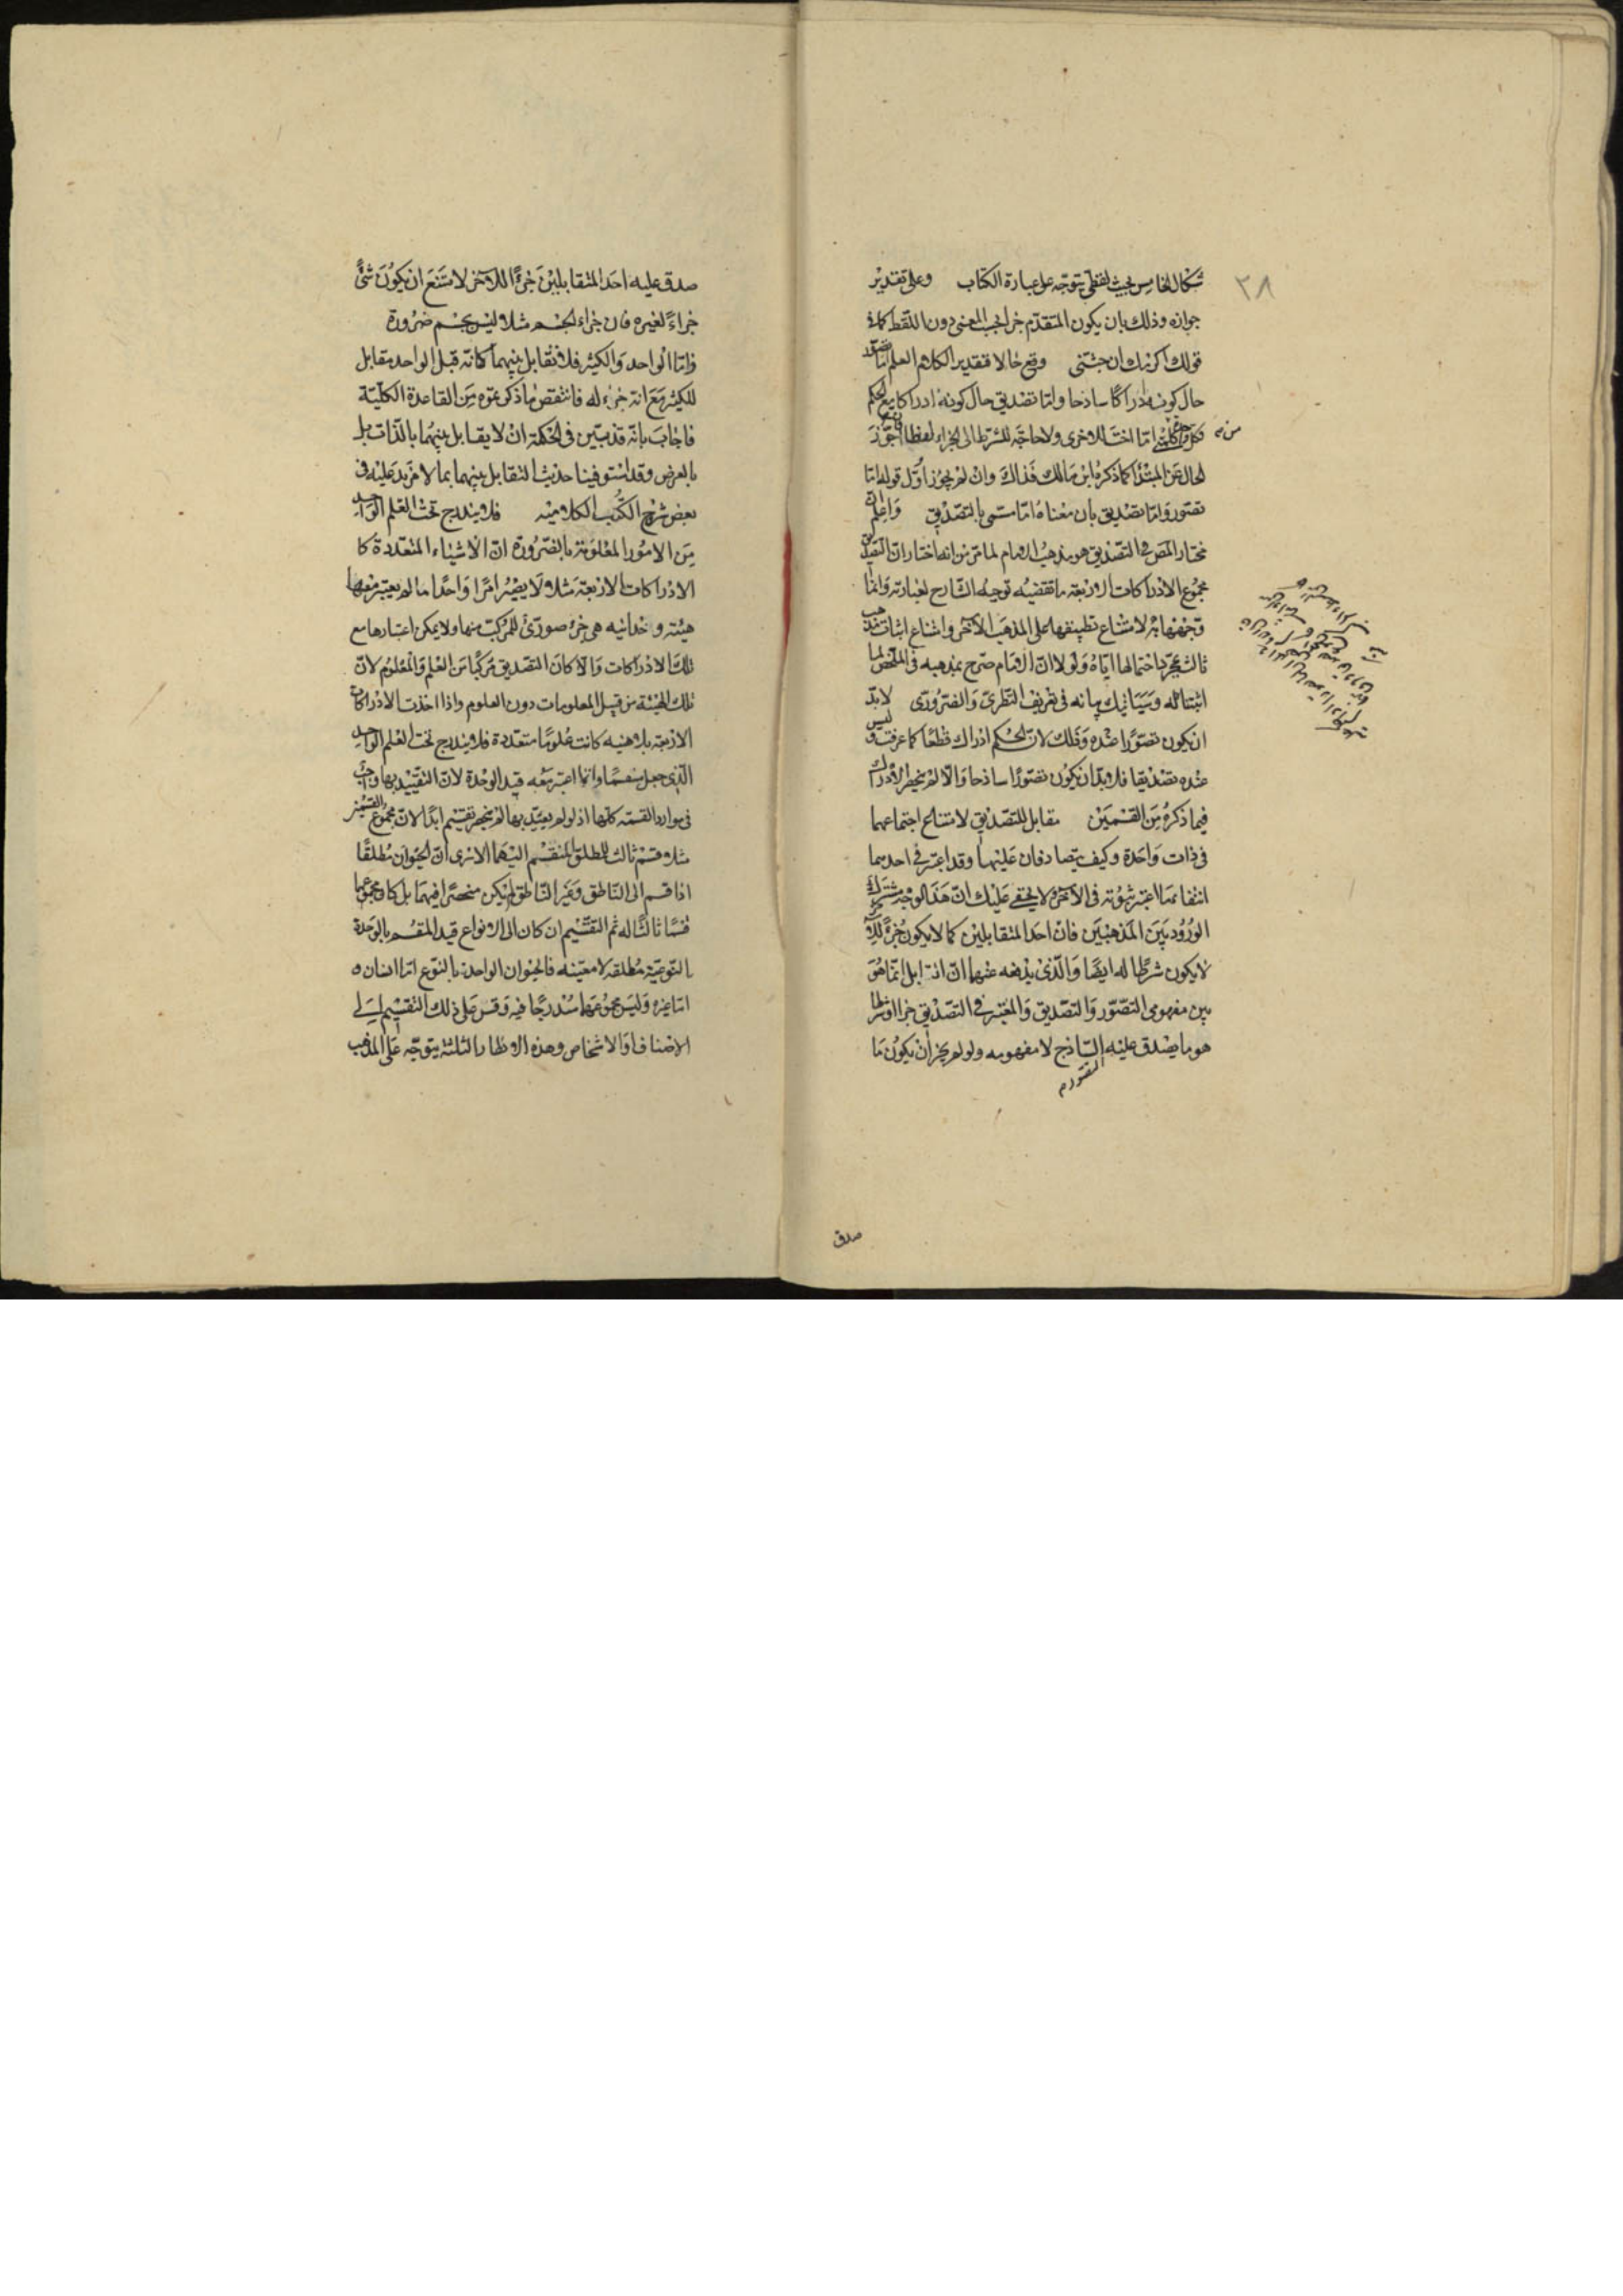 شكال الخامس بحث لفظي يتوجه على عبارة الكتاب وعلى تقدير
جوازه وذلك بان يكون المتقدم جزا بحسب المعنى دون اللفظ كما في
قولك اكرمك ان جئتنى وقع حالا فتقدير الكلام العلم اما تصور
حال كونه ادراكا ساذجا واما تصديق حال كونه ادراكا مع الحكم
اختا الاخرى ولا حاجة للشرط الى الجزاء لفظا جوز
الحال عن المبتدا كما ذكره ابن مالك فذاك وان لم يجوز اول قوله اما
تصور واما تصديق بان معناه اما مسمى بالتصديق واعلم ان
مختار المص في التصديق هو مذهب الامام لما مر من انه اختار ان التصديق
مجموع الادراكات الاربعة ما تقضيه توجيه الشارح لعبارته وانما
لامتناع تطبيقها على المذهب الآخر وامتناع اثبات مذهب
ثالث بمجرد احتمالها اياه ولولا ان الامام صرح بمذهبه في الملخص لما
اثبتناه له وسيأتيك بيانه في تعريف النظرى والضرورى لا بد
ان يكون تصورا عنده وذلك لان الحكم ادراك قطعا كما عرفت وليس
عنده تصديقا فلا بد ان يكون تصورا ساذجا والا لم ينحصر الادراك
فيما ذكره من القسمين مقابل للتصديق لامتناع اجتماعهما
فى ذات واحدة وكيف يتصادفان عليهما وقد اعتبر في احدهما
انتفاء ما اعتبر ثبوته فى الآخر ولا يخفى عليك ان هذا الوجه مشترك
الورود بين المذهبين فان احد المتقابلين كما لا يكون جزءا للآخر
لا يكون شرطا له ايضا والذى يدفعه عنهما ان التقابل انما هو
بين مفهومى التصور والتصديق والمعتبر في التصديق جزا او شرطا
هو ما يصدق عليه التصور الساذج لا مفهومه ولو لم يجز ان يكون ما
صدق
٣٨
صدق عليه احد المتقابلين جزءا للاخر لامتنع ان يكون شئ
جزاء لغيره فان جزاء الجسم مثلا ليس بجسم ضرورة
واما الواحد والكثير فلا تقابل بينهما كانه قيل الواحد مقابل
للكثير مع انه جزء له فانتقض ما ذكرتموه من القاعدة الكلية
فاجاب بانه قد تبين فى الحكمة ان لا تقابل بينهما بالذات بل
بالعرض وقد استوفينا حديث التقابل بينهما بما لا مزيد عليه فى
بعض شرح الكتب الكلامية فلا يندرج تحت العلم الواحد
من الامور المعلومة بالضرورة ان الاشياء المتعددة كا
الادراكات الاربعة مثلا لا يصير امرا واحدا ما لم يعتبر معها
هيئة وحدانية هى جزء صورى للمركب منها ولا يمكن اعتبارها مع
تلك الادراكات والا كان التصديق مركبا من العلم والمعلوم لان
تلك الهيئة من قبيل المعلومات دون العلوم واذا اخذت الادراكات
الاربعة بلا هيئة كانت علوما متعددة فلا يندرج تحت العلم الواحد
الذى جعل منقسما وانما اعتبر معه قيد الوحدة لان التقييد بها واجب
فى موارد القسمة كلها اذ لو لم يقيد بها لم ينحصر تقسيم ابدا لان مجموع القسمين
مثلا قسم ثالث للمطلق المنقسم اليهما الا ترى ان الحيوان مطلقا
اذا قسم الى الناطق وغير الناطق لم يكن منحصرا فيهما بل كان مجموعهما
قسما ثالثا له ثم التقسيم ان كان الى الانواع قيد المقسم بالوحدة
النوعية مطلقة لا معينة فالحيوان الواحد بالنوع اما انسان و
اما غيره وليس مجموعهما مندرجا فيه وقس على ذلك التقسيم الى
الاصناف او الاشخاص وهذه الانظار الثلثة يتوجه على المذهب